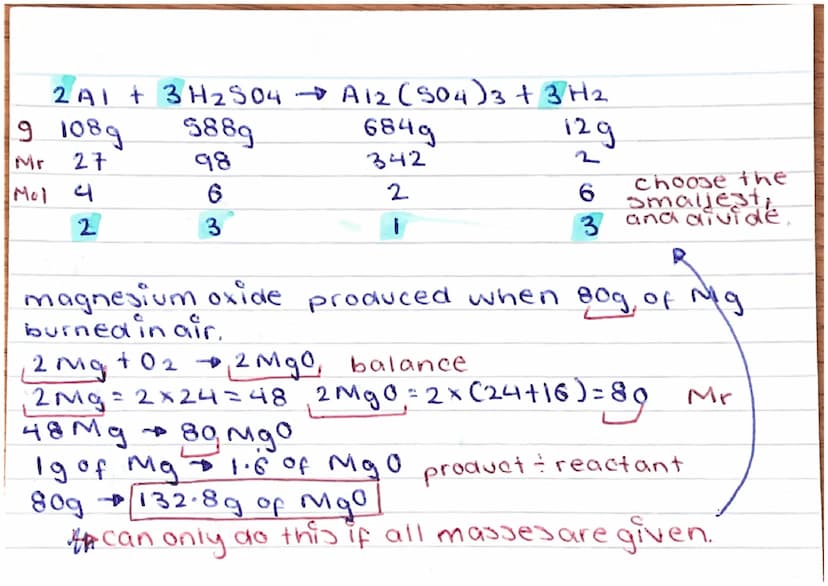 2Al + 3H2SO4 → Al2(SO4)3 + 3H2
g 108g 588g 684g 12g
Mr 27 98 342 2
Mol 4 6 2 6 choose the
smallest,
2 3 1 3 and divide.
magnesium oxide produced when 80g, of Mg
burned in air.
2Mg + O2 → 2MgO, balance
2Mg = 2×24 = 48 2MgO = 2×(24+16) = 80 Mr
48Mg → 80 MgO
1g of Mg → 1.6 of MgO product ÷ reactant
80g → 132.8g of MgO
can only do this if all masses are given.